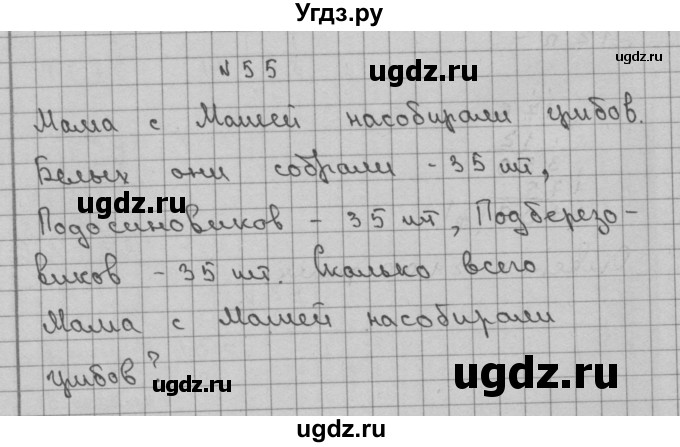 Угдз.ру
№55
ugdz.ru
ugdz.ru
Мама с Машей насобирали грибов.
Белых они собрали - 35 шт,
ugdz.ru
Подосиновиков - 35 шт, Подберезо-
виков - 35 шт. Сколько всего
ugdz.ru
ugdz.ru
Мама с Машей насобирали
ugdz.ru
грибов?
ugdz.ru
ugdz.ru